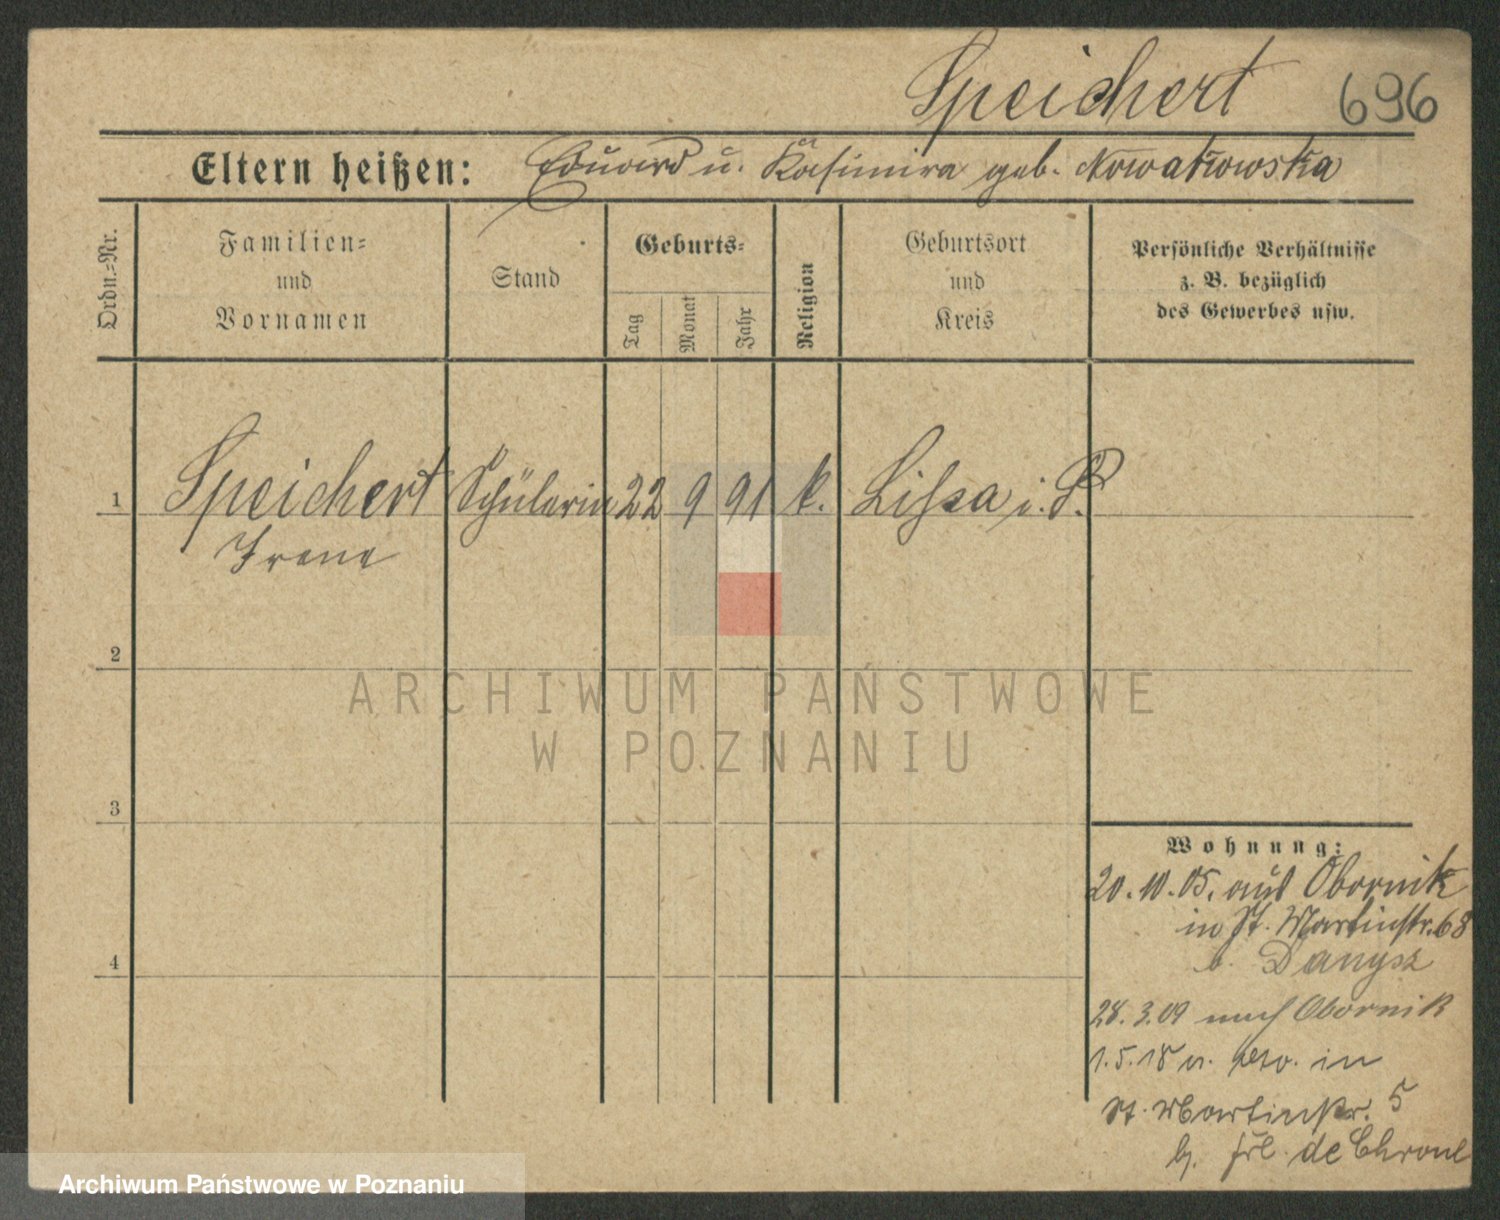 Speichert 696
Eltern heißen: Eduard u. Kasimira geb. Nowakowska
Ordn.=Nr.
Familien=
und
Vornamen
Stand
Geburts=
Tag
Monat
Jahr
Religion
Geburtsort
und
Kreis
Persönliche Verhältnisse
z. B. bezüglich
des Gewerbes usw.
1 Speichert Schülerin 22 9 91 k. Lissa i. P.
Irene
2
ARCHIWUM PAŃSTWOWE
W POZNANIU
3
Wohnung:
20.10.05. aus Obornik
in St. Martinstr. 68
b. Danysz
4
28.3.09 nach Obornik
1.5.18 v. in
St. Martinstr. 5
b. Frl. de
Archiwum Państwowe w Poznaniu